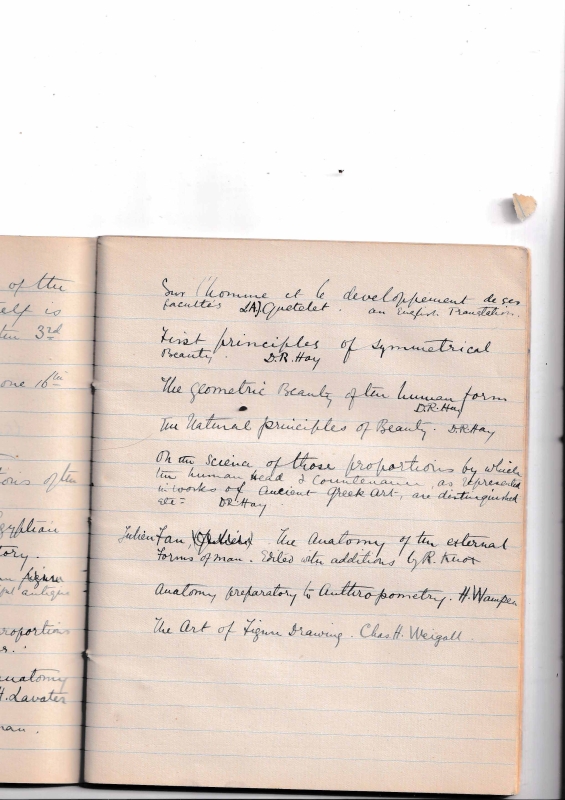 of the
elf is
the 3rd
one 16th
ions of the
gyptian
tory.
figure
antique
roportions
s.
anatomy
H. Lavater
man.
Sur l'homme et le developpement de ses
facultés (A) Quetelet. an English Translation.
First principles of Symmetrical
Beauty. D.R. Hay
The Geometric Beauty of the human form
D.R. Hay
The Natural principles of Beauty. D.R. Hay
On the Science of those proportions by which
the human head & countenance, as represented
in works of Ancient Greek Art, are distinguished
etc - D.R. Hay.
Julien Fau, The Anatomy of the external
Forms of man. Edited with additions by R. Knox
Anatomy preparatory to Anthropometry. H. Wampen
The Art of Figure Drawing. Chas H. Weigall.